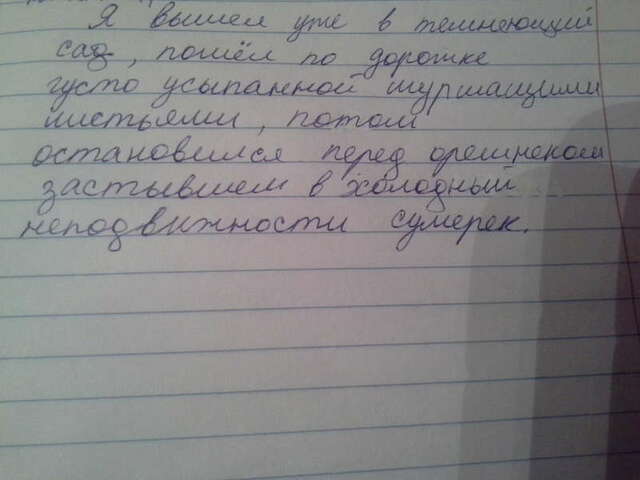 Я вышел уже в темнеющий
сад, пошёл по дорожке
густо усыпанной шуршащими
листьями, потом
остановился перед орешником
застывшем в холодный
неподвижности сумерек.